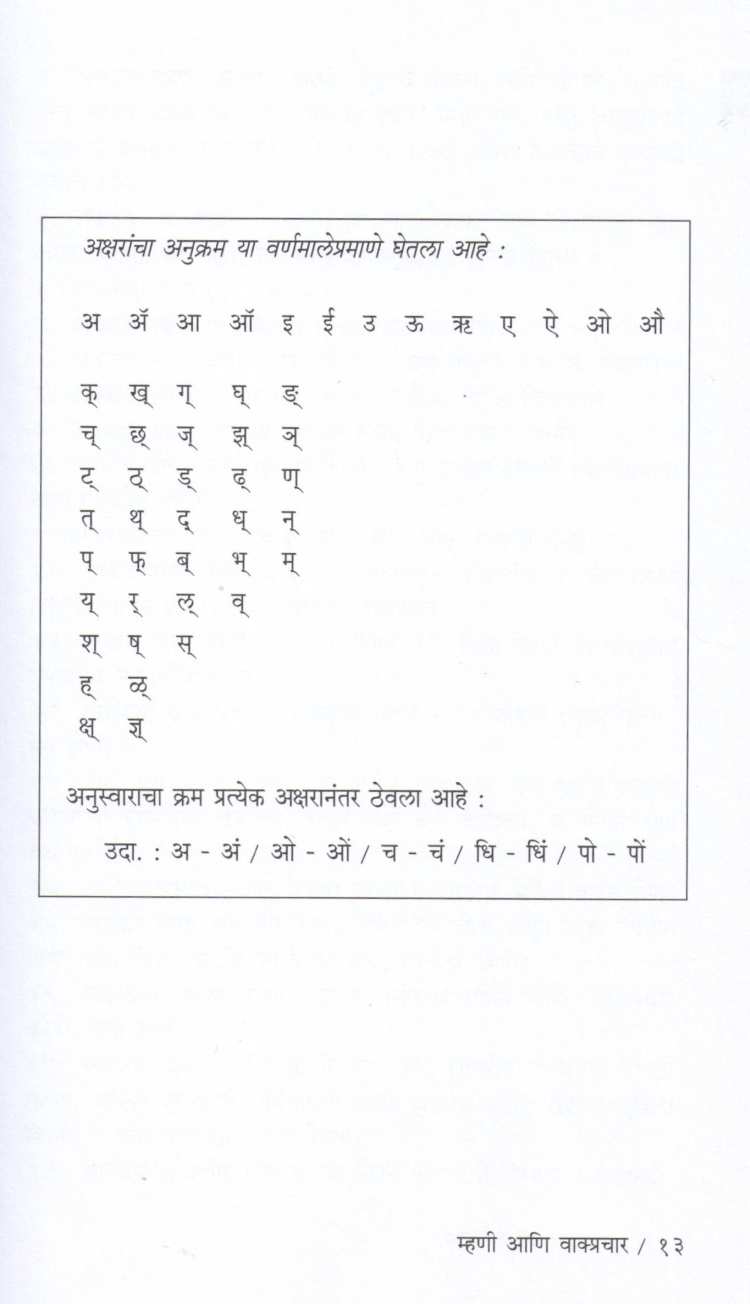 अक्षरांचा अनुक्रम या वर्णमालेप्रमाणे घेतला आहे :
अ ॲ आ ऑ इ ई उ ऊ ऋ ए ऐ ओ औ
क् ख् ग् घ् ङ्
च् छ् ज् झ् ञ्
ट् ठ् ड् ढ् ण्
त् थ् द् ध् न्
प् फ् ब् भ् म्
य् र् ल् व्
श् ष् स्
ह् ळ्
क्ष् ज्ञ्
अनुस्वाराचा क्रम प्रत्येक अक्षरानंतर ठेवला आहे :
उदा. : अ - अं / ओ - ओं / च - चं / धि - धिं / पो - पों
म्हणी आणि वाक्प्रचार / १३